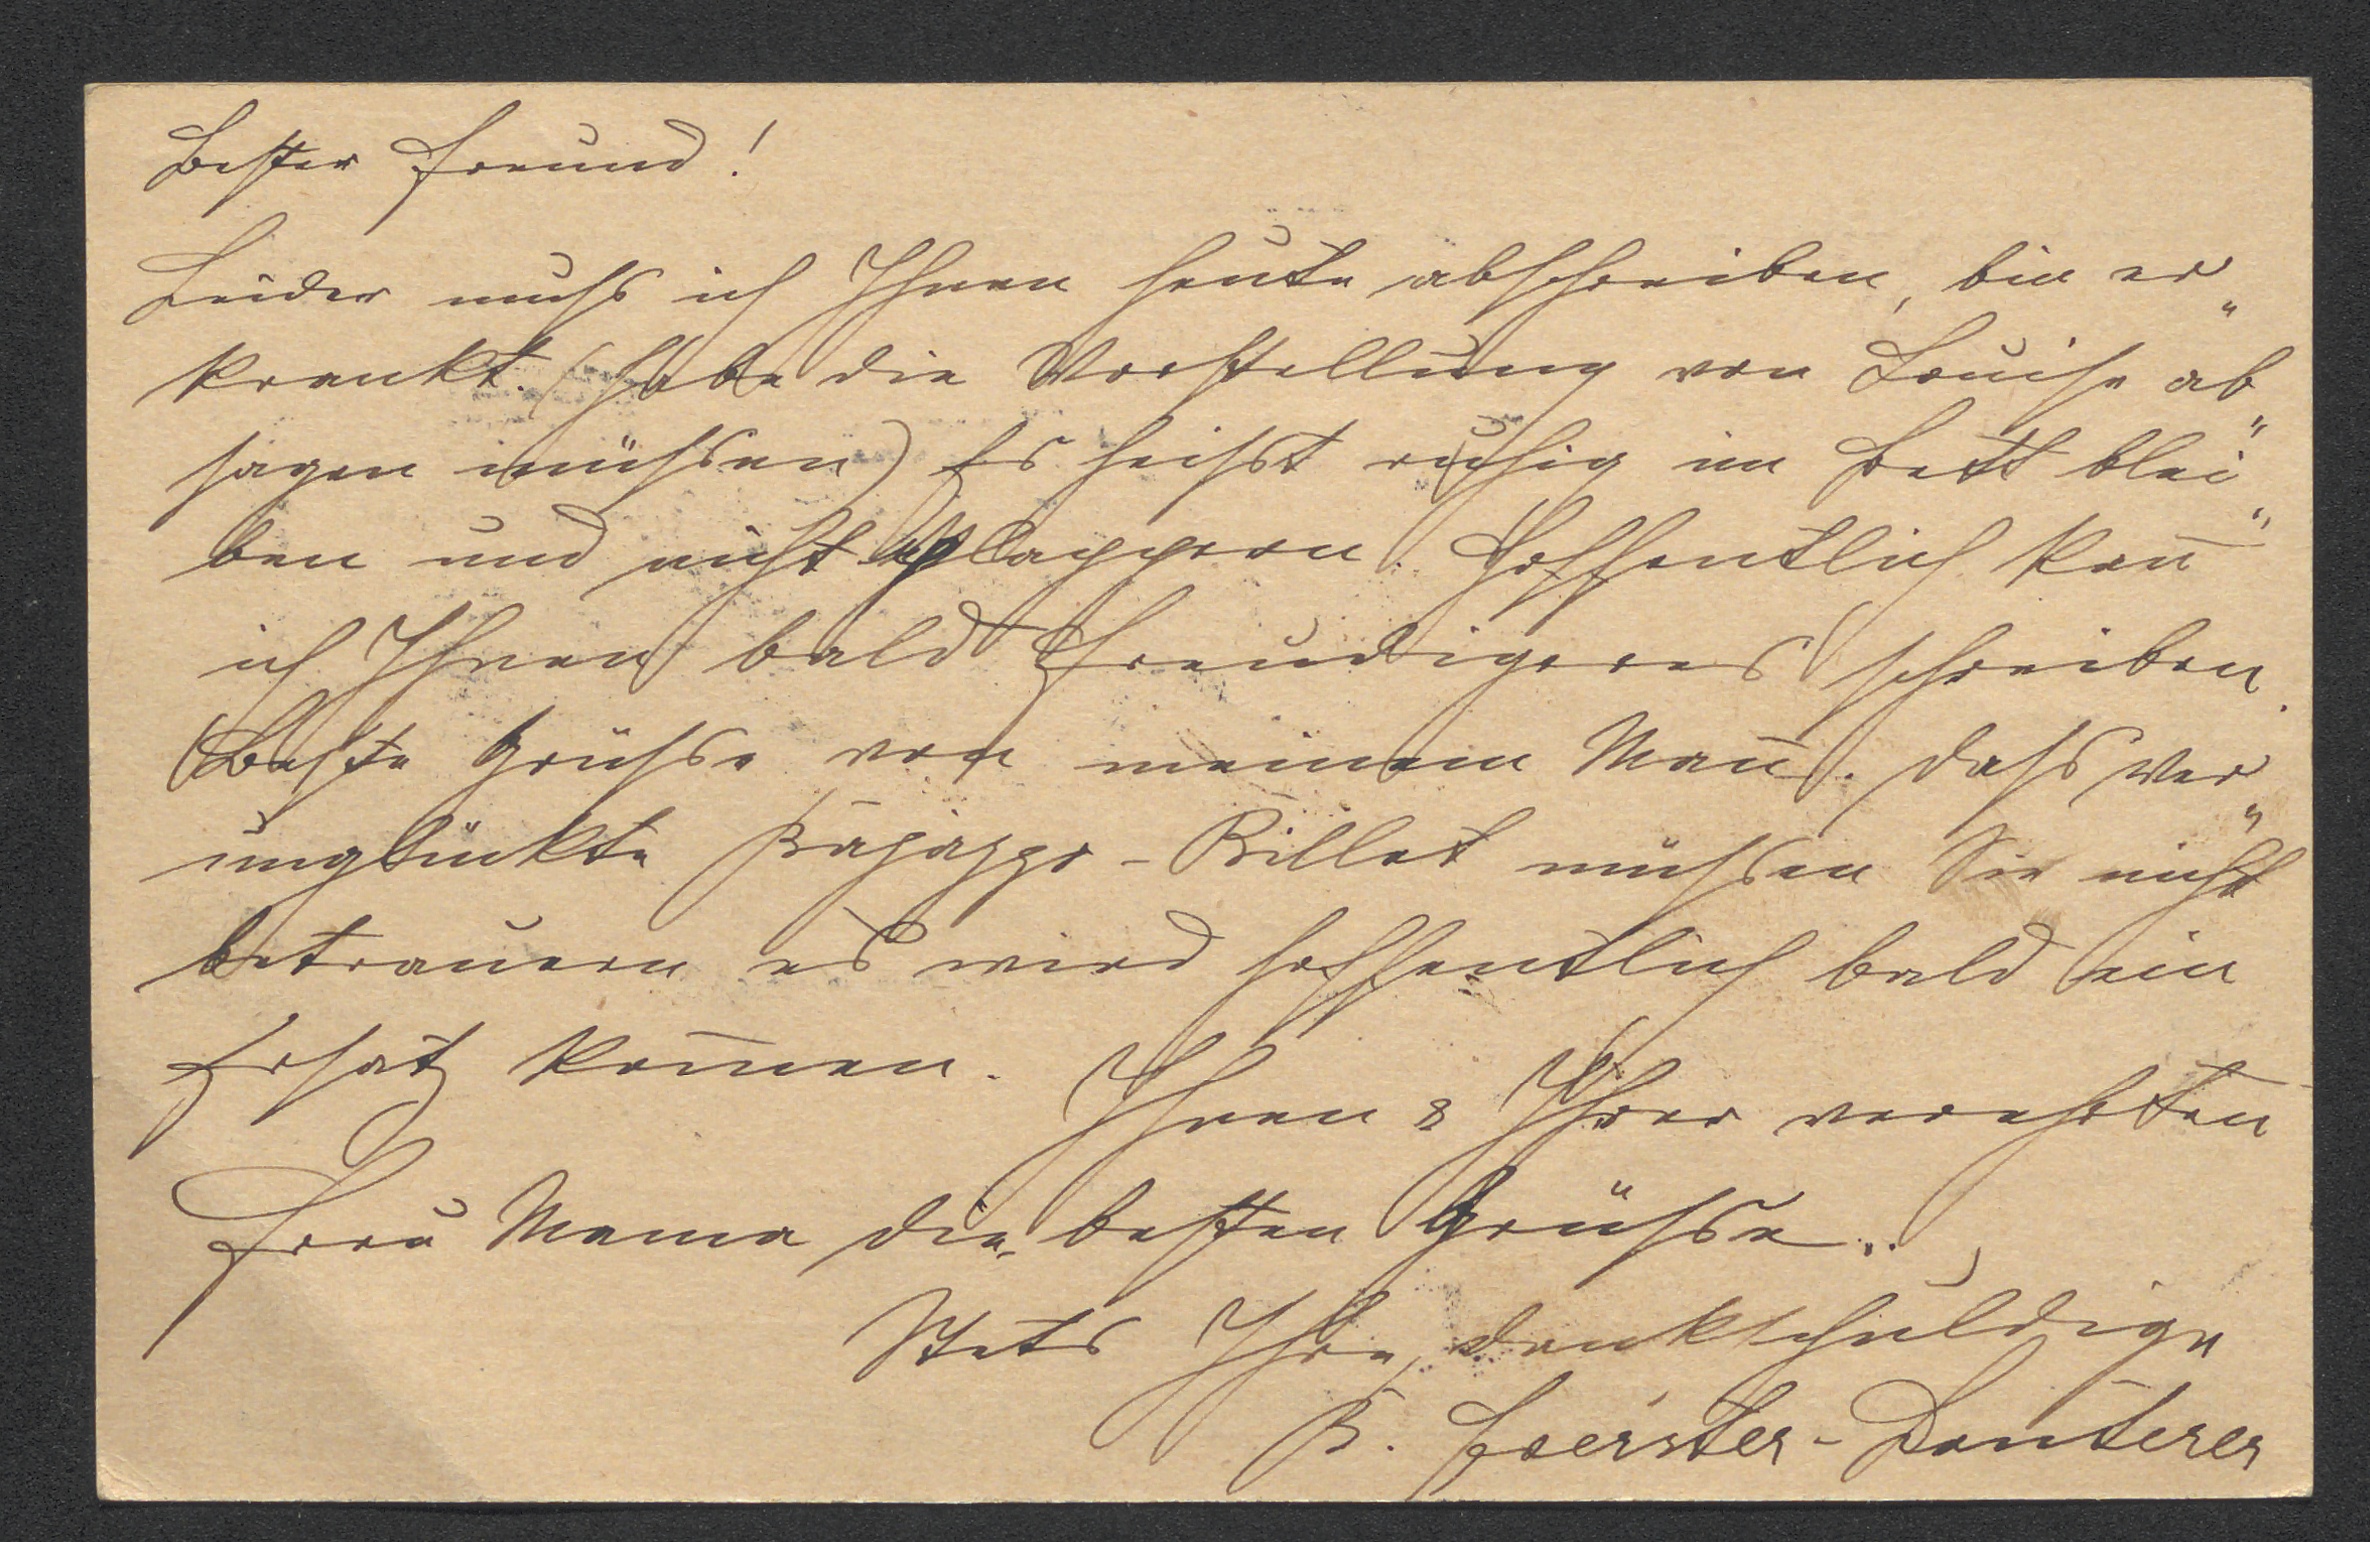 Bester Freund!
Leider muss ich Ihnen heute abschreiben, bin er„
krankt. (Habe die Vorstellung von Louise ab„
sagen müssen) Es heisst ruhig im Bett blei„
ben und nicht plappern. Hoffentlich kan̄
ich Ihnen bald Freudigeres schreiben.
Beste Grüsse von meinem Man̄. Dass ver„
unglückte Bajazzo-Billet müssen Sie nicht
betrauern es wird hoffentlich bald ein
Ersatz kom̄en. Ihnen & Ihrer verehrten
Frau Mama die besten Grüsse.
Stets Ihre dankschuldige
B. Foerster-Lauterer